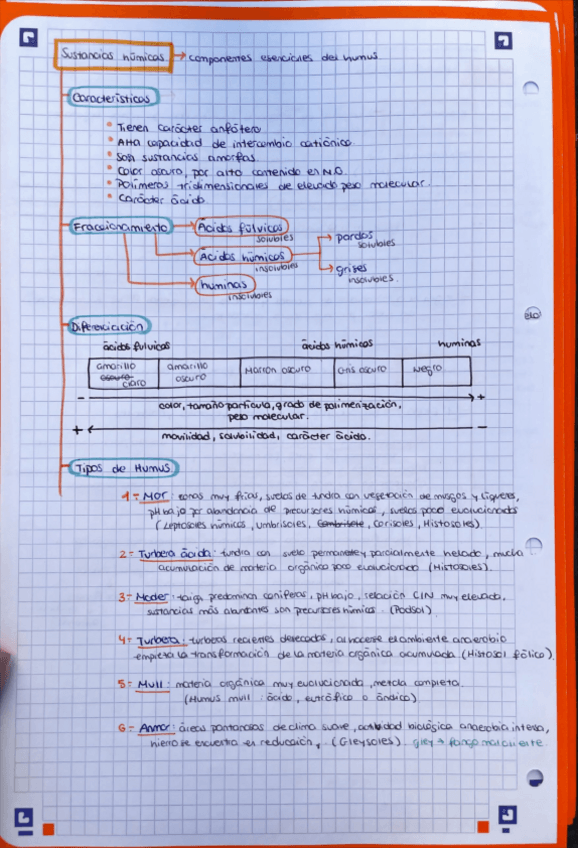 Sustancias húmicas → componentes esenciales del humus
Características
• Tienen carácter anfótero
• Alta capacidad de intercambio catiónico
• Son sustancias amorfas.
• Color oscuro, por alto contenido en N.O.
• Polímeros tridimensionales de elevado peso molecular.
• Carácter ácido
Fraccionamiento → Ácidos fúlvicos
solubles
→ pardos
solubles
Ácidos húmicos
insolubles
→ grises
insolubles.
huminas
insolubles
Diferenciación
ácidos fúlvicos ácidos húmicos huminas
amarillo claro amarillo oscuro Marrón oscuro Gris oscuro Negro
- +
color, tamaño partícula, grado de polimerización,
peso molecular.
+ -
movilidad, solubilidad, carácter ácido.
Tipos de Humus
1- Mor: zonas muy frías, suelos de tundra con vegetación de musgos y líquenes,
pH bajo por abundancia de precursores húmicos, suelos poco evolucionados
(Leptosoles húmicos, Umbrisoles, Corisoles, Histosoles)
2- Turbera ácida: tundra con suelo permanente y parcialmente helado, mucha
acumulación de materia orgánica poco evolucionada (Histosoles).
3- Moder: taiga predominan coníferas, pH bajo, relación C/N muy elevada,
sustancias más abundantes son precursores húmicos. (Podsol)
4- Turbera: turberas recientes desecadas, al hacerse el ambiente anaerobio
empieza la transformación de la materia orgánica acumulada (Histosol fólico).
5- Mull: materia orgánica muy evolucionada, mezcla completa.
(Humus mull: ácido, eutrófico o ándico)
6- Anmor: áreas pantanosas de clima suave, actividad biológica anaerobia intensa,
hierro se encuentra en reducción, (Gleysoles) gley → fango maloliente